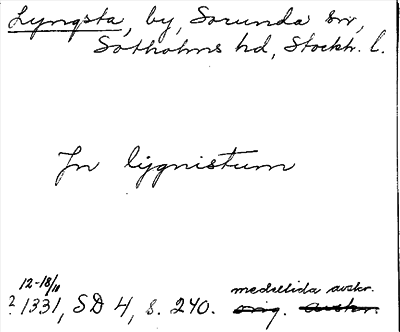 Lyngsta, by, Sorunda sn,
Sotholms hd, Stockh. l.
Jn lygnistum
12-18/10
? 1331, SD 4, s. 240. orig. avskr.
medeltida avskr.